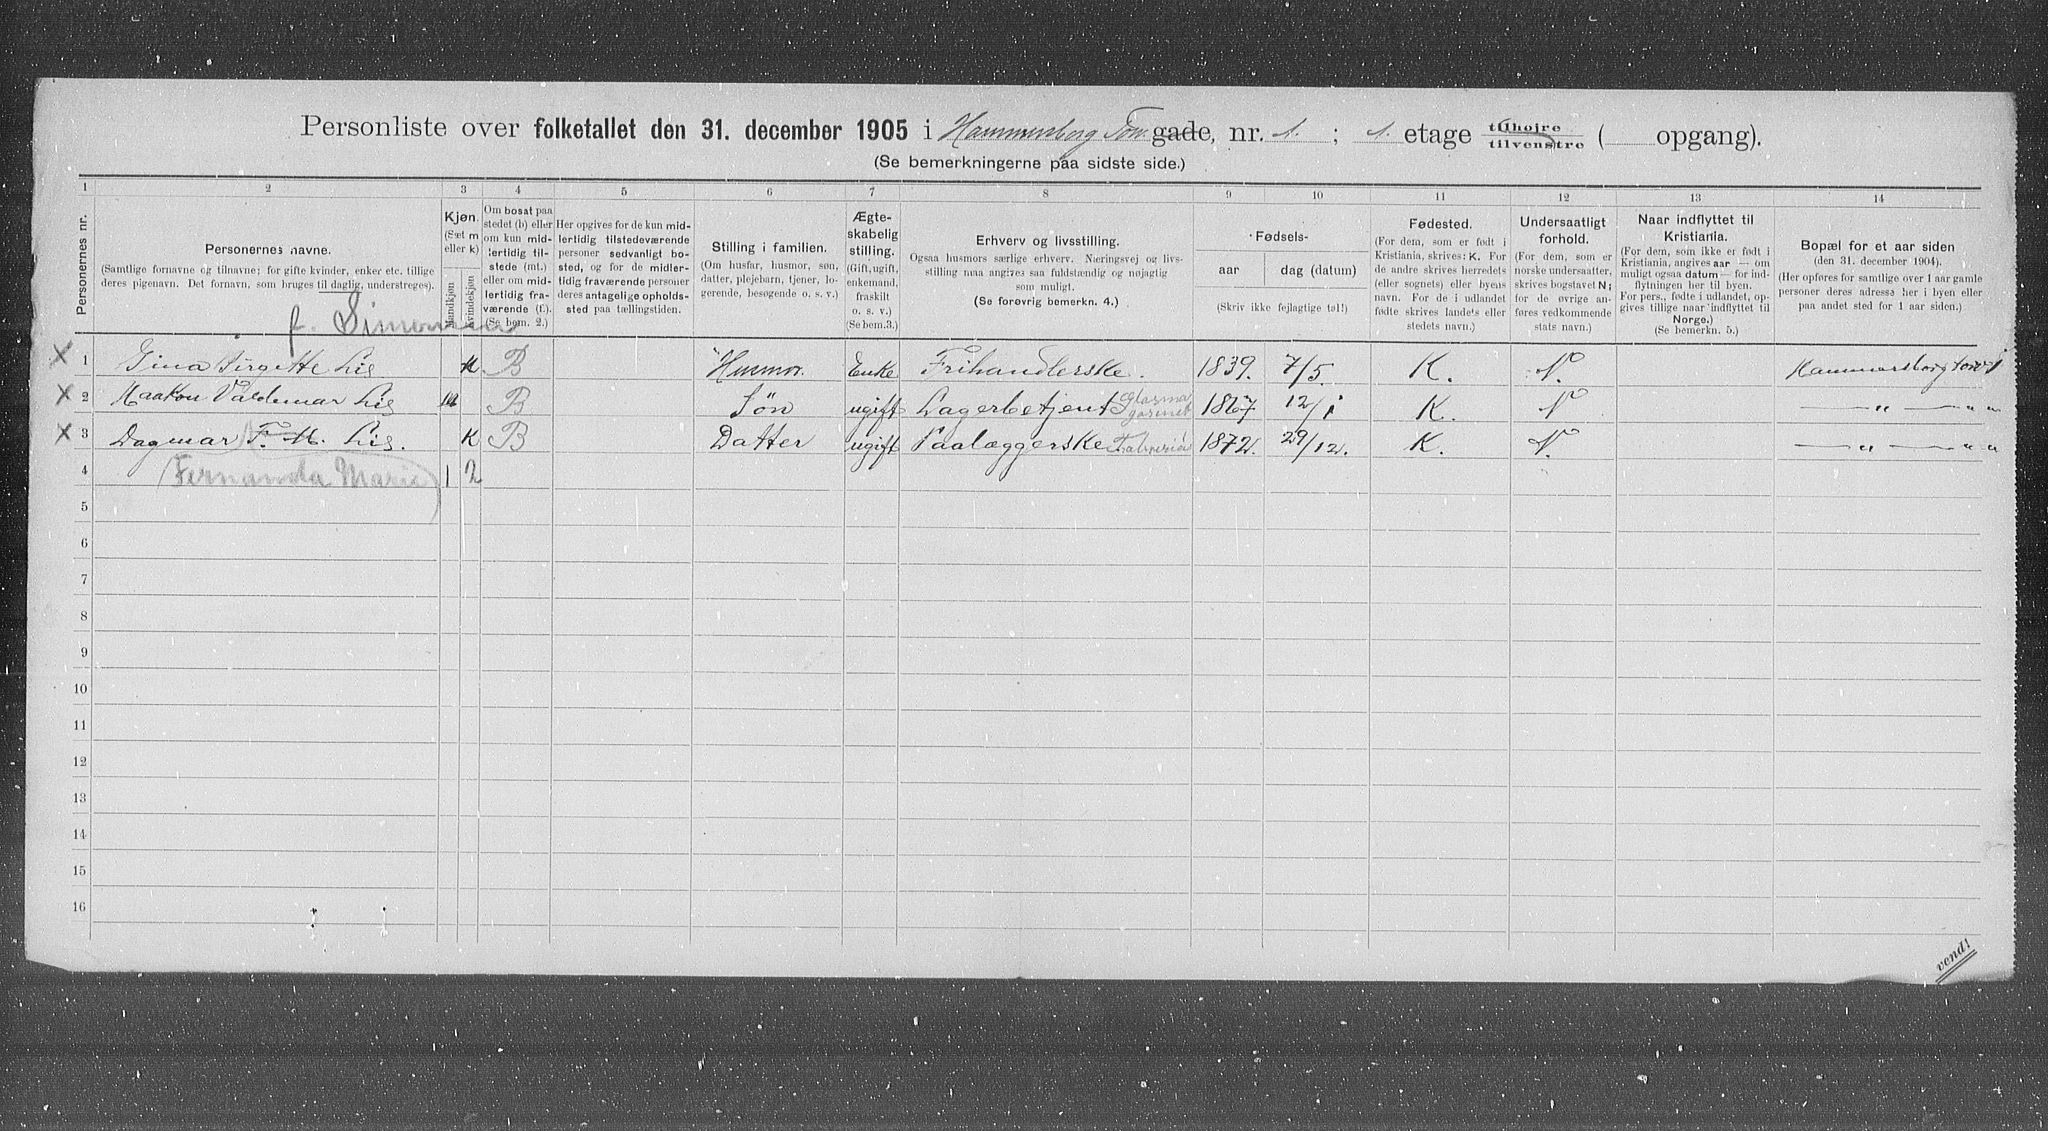 Personliste over folketallet den 31. december 1905 i Hammersborg Torv gade, nr. 1. ; 1. etage tilhøjre tilvenstre ( opgang).
(Se bemerkningerne paa sidste side.)
1 2 3 4 5 6 7 8 9 10 11 12 13 14
Personernes nr.
Personernes navne.
(Samtlige fornavne og tilnavne; for gifte kvinder, enker etc. tillige
deres pigenavn. Det fornavn, som bruges til daglig, understreges).
Kjøn.
(Sæt m
eller k)
Mandkjøn
Kvindekjøn
Om bosat paa
stedet (b) eller
om kun mid-
lertidig til-
stede (mt.)
eller om mid-
lertidig fra-
værende (f.).
(Se bem. 2.)
Her opgives for de kun mid-
lertidig tilstedeværende
personer sedvanligt bo-
sted, og for de midler-
tidig fraværende personer
deres antagelige opholds-
sted paa tællingstiden.
Stilling i familien.
(Om husfar, husmor, søn,
datter, plejebarn, tjener, lo-
gerende, besøgende o. s. v.)
Ægte-
skabelig
stilling.
(Gift, ugift,
enkemand,
fraskilt
o. s. v.)
(Se bem.3.)
Erhverv og livsstilling.
Ogsaa husmors særlige erhverv. Næringsvej og livs-
stilling maa angives saa fuldstændig og nøjagtig
som muligt.
(Se forøvrig bemerkn. 4.)
Fødsels-
aar dag (datum)
(Skriv ikke fejlagtige tal!)
Fødested.
(For dem, som er født i
Kristiania, skrives: K. For
de andre skrives herredets
(eller sognets) eller byens
navn. For de i udlandet
fødte skrives landets eller
stedets navn.)
Undersaatligt
forhold.
(For dem, som er
norske undersaatter,
skrives bogstavet N;
for de øvrige an-
føres vedkommende
stats navn.)
Naar indflyttet til
Kristiania.
(For dem, som ikke er født i
Kristiania, angives aar — om
muligt ogsaa datum — for ind-
flytningen her til byen.
For pers., fødte i udlandet, op-
gives tillige naar indflyttet til
Norge.)
(Se bemerkn. 5.)
Bopæl for et aar siden
(den 31. december 1904).
(Her opføres for samtlige over 1 aar gamle
personer deres adresse her i byen eller
paa andet sted for 1 aar siden.)
f. Simonsen
X 1 Gina Birgitte Lie k B Husmor. Enke Frihandlerske. 1839. 7/5. K. N. Hammersborg torv 1
X 2 Haakon Valdemar Lie m B Søn ugift Lagerbetjent Glasma gasinet 1867 12/1 K. N — " — " "
X 3 Dagmar F. M. Lie. k B Datter ugift Paalæggerske 1872. 29/12. K. N. — " — " "
4 (Fernanda Marie) 1 2
5
6
7
8
9
10
11
12
13
14
15
16
vend!